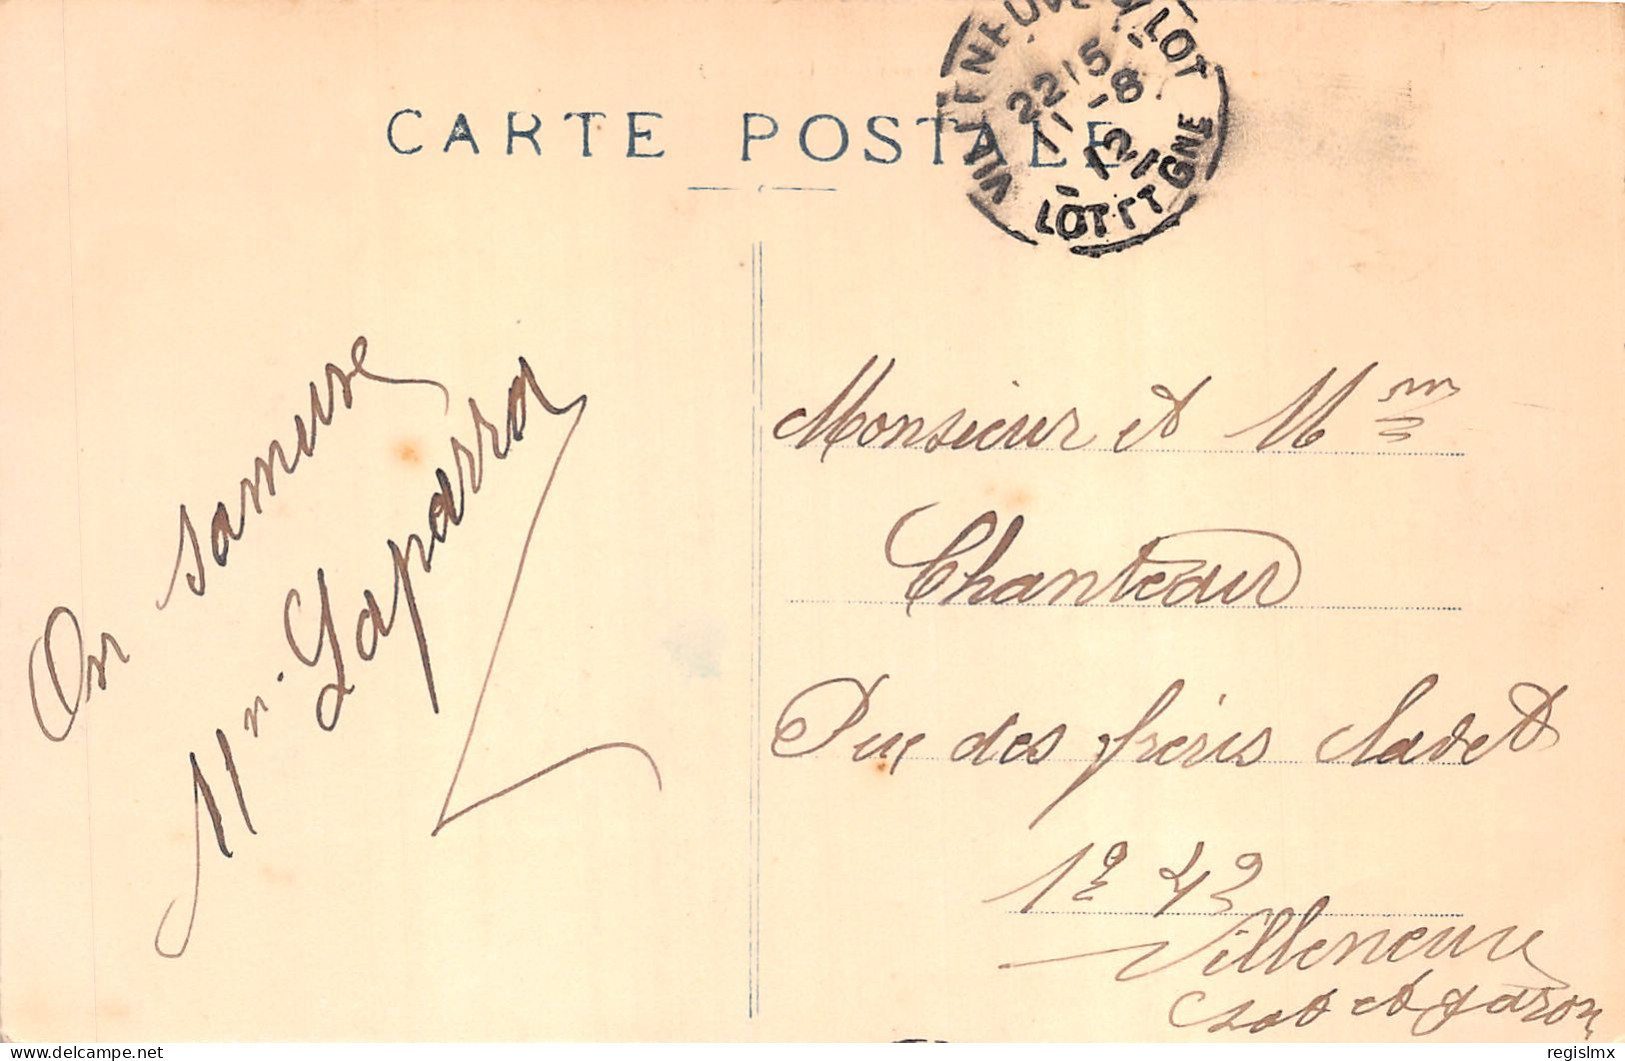 CARTE POSTALE
VILLENEUVE S/ LOT
22 15
11 -8
12
LOT ET GNE
On samuse
Mn. Laparra
Monsieur et Mme
Chanteau
Rue des frères Cladet
Villeneuve
Lot et garon
regislmx
delcampe.net